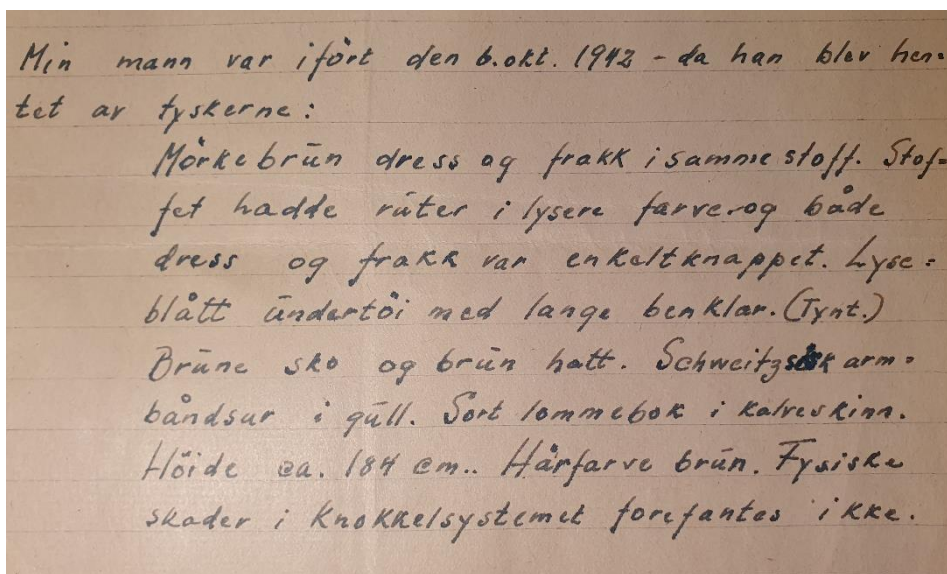 Min mann var ifört den 6. okt. 1942 - da han blev hen-
tet av tyskerne:
Mörkebrūn dress og frakk i samme stoff. Stof-
fet hadde rūter i lysere farve og både
dress og frakk var enkeltknappet. Lyse-
blått ūndertöi med lange benklær. (Tynt.)
Brūne sko og brūn hatt. Schweitzsisk arm-
båndsur i gūll. Sort lommebok i kalveskinn.
Höide ca. 184 cm.. Hårfarve brūn. Fysiske
skader i knokkelsystemet forefantes ikke.